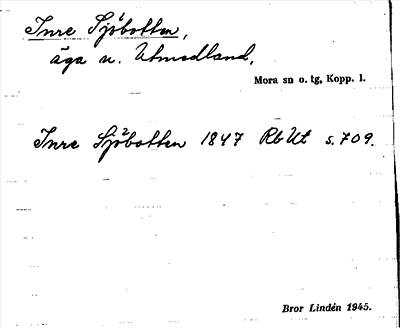 Inre Sjöbotten,
äga n. Utmedland,
Mora sn o. tg, Kopp. l.
Inre Sjöbotten 1847 Rb Ut s. 709.
Bror Lindén 1945.